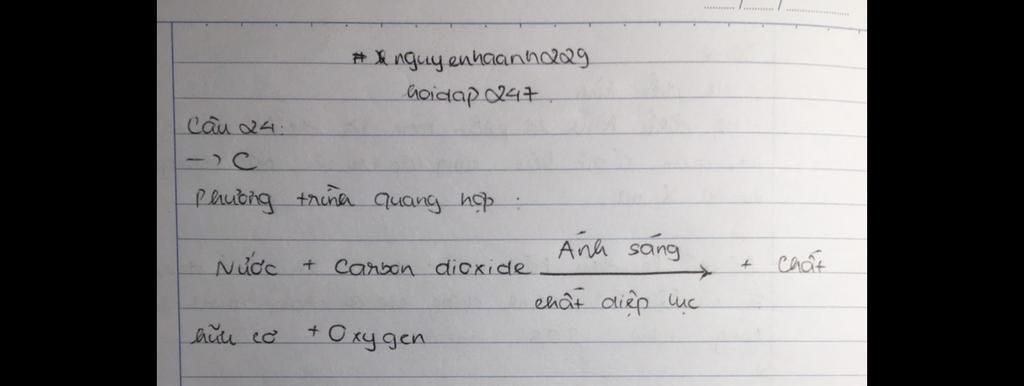 # nguyenhaanh229
hoidap247.
Câu 24:
→ C
Phương trình quang hợp :
Ánh sáng
Nước + Carbon dioxide → + Chất
chất diệp lục
hữu cơ + Oxygen